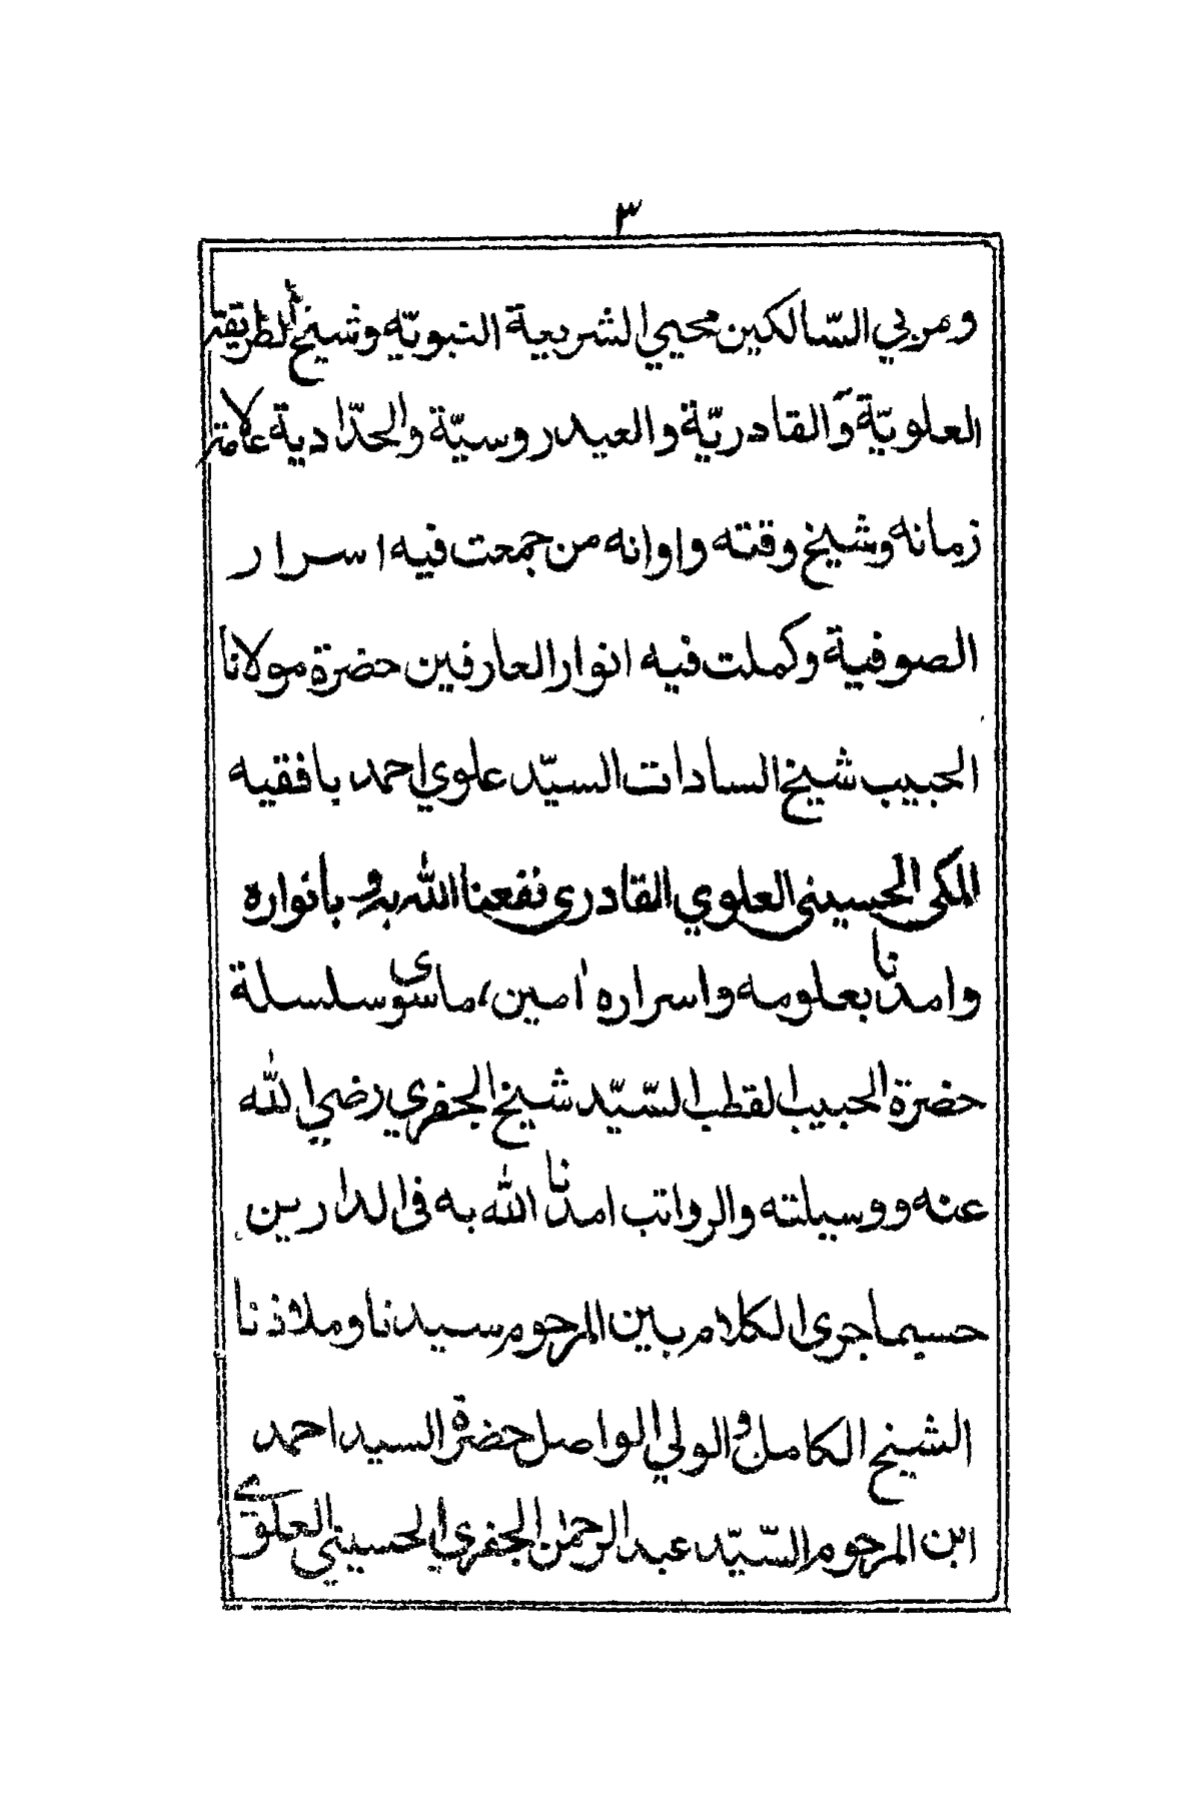 ٣
ومربي السّالكين محيي الشريعة النبويّه وشيخ الطريقة
العلويّة وَالقادريّة والعيدروسيّة والحدّادية علامة
زمانه وشيخ وقته واوانه من جمعت فيه اسرار
الصوفية وكملت فيه انوار العارفين حضرة مولانا
الحبيب شيخ السادات السيّد علوي احمد بافقيه
المكى الحسينى العلوي القادرى نفعنا الله به وبانواره
وامدنا بعلومه واسراره اٰمين، ماسوى سلسلة
حضرة الحبيب القطب السّيّد شيخ الجفري رضي الله
عنه ووسيلته والرواتب امدنا الله به فى الدارين
حسبما جرى الكلام بين المرحوم سيدنا وملاذنا
الشيخ الكامل والولي الواصل حضرة السيد احمد
ابن المرحوم السّيّد عبد الرحمٰن الجفري الحسيني العلوي